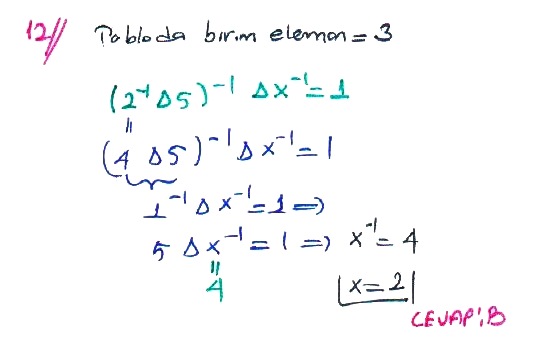 12// Tabloda birim eleman = 3
(2⁻¹ Δ 5)⁻¹ Δ x⁻¹ = 1
"
(4 Δ 5)⁻¹ Δ x⁻¹ = 1
1⁻¹ Δ x⁻¹ = 1 ⇒
5 Δ x⁻¹ = 1 ⇒ x⁻¹ = 4
"
4 x = 2
CEVAP: B